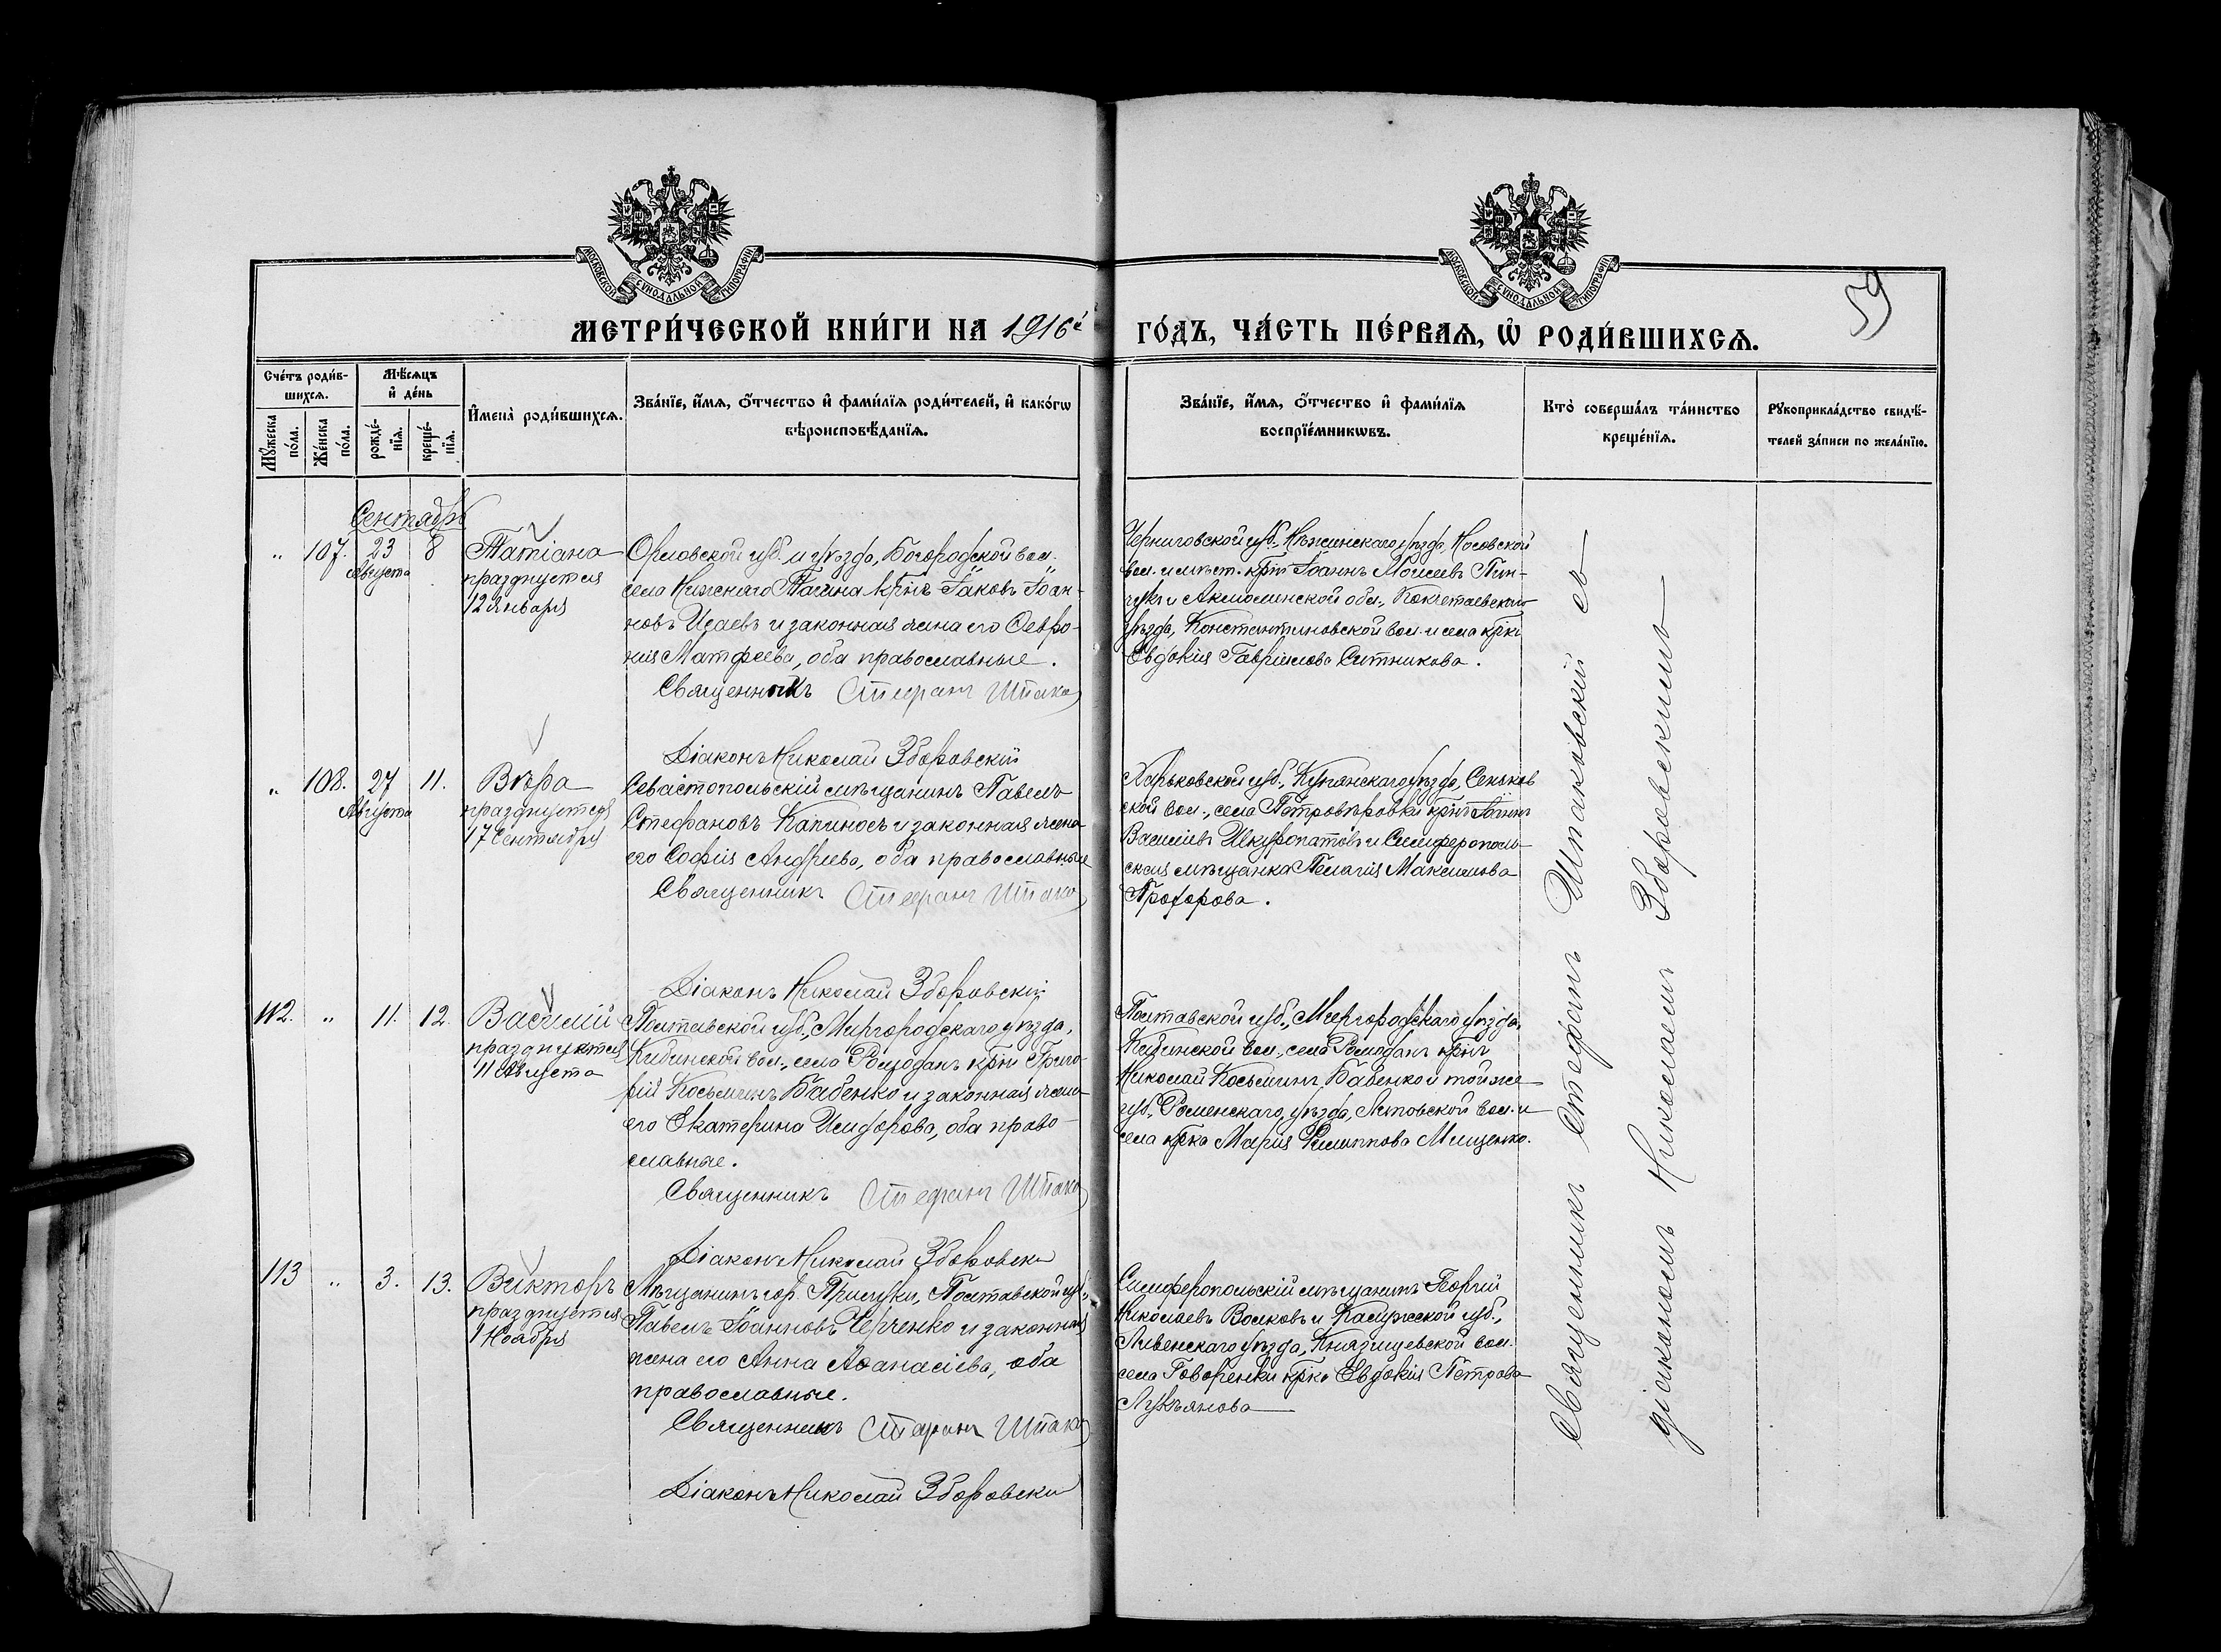 МОСКОВСКОЙ СѴНОДАЛЬНОЙ ТИПОГРАФІИ
МОСКОВСКОЙ СѴНОДАЛЬНОЙ ТИПОГРАФІИ
59
МЕТРИ́ЧЕСКОЙ КНИ́ГИ НА 1916й
ГО́ДЪ, ЧА́СТЬ ПЕ́РВАЯ, Ѡ҆ РОДИ́ВШИХСЯ.
Сче́тъ роди́в-
шихся.
Мѣ́сяцъ
и҆ де́нь
Мꙋ́жеска по́ла.
Же́нска по́ла.
рожде́-
нїя.
креще́-
нїя.
И҆мена̀ роди́вшихся.
Зва́нїе, и҆́мя, ѻ҆́тчество и҆ фами́лїя роди́телей, и҆ како́гѡ
вѣроисповѣ́данїя.
Зва́нїе, и҆́мя, ѻ҆́тчество и҆ фами́лїя
воспрїе́мникѡвъ.
Кто̀ соверша́лъ та́инство
креще́нїя.
Рꙋкоприкла́дство свидѣ́-
телей за́писи по жела́нїю.
Сентябрь
" 107. 23 8
Августа
Татіана
празднуется
12 января
Орловской губ. и уѣзда, Богородской вол.
села Нижняго Тагина крнъ Іаковъ Іоан-
новъ Исаевъ и законная жена его Февро-
нія Матфеева, оба православные.
Священникъ Стефанъ Шпако
Діаконъ Николай Зборовскій
Черниговской губ., Нѣжинскаго уѣзда, Носовской
вол. и мѣст. крнъ Іоаннъ Моисеевъ Пин-
чукъ и Акмолинской обл., Кокчетаевскаго
уѣзда, Константиновской вол. и села крка
Евдокія Гавріилова Ситникова.
" 108. 27 11.
Августа
Вѣра
празднуется
17 Сентября
Севастопольскій мѣщанинъ Павелъ
Стефановъ Капиносъ и законная жена
его Софія Андреева, оба православные
Священникъ Стефанъ Шпако
Діаконъ Николай Зборовскій
Харьковской губ., Купянскаго уѣзда, Сеньков
ской вол., села Петровѣровки крнъ Іоаннъ
Василіевъ и Симферополь-
ская мѣщанка Пелагія Максимова
Прохорова.
112. " 11. 12.
Василій
празднуется
11 Августа
Полтавской губ., Миргородскаго уѣзда,
Кибинской вол., села Ромодана крнъ Григо-
рій Косьминъ Бабенко и законная жена
его Екатерина Исидорова, оба право-
славные.
Священникъ Стефанъ Шпако
Діаконъ Николай Зборовски
Полтавской губ., Миргородскаго уѣзда,
Кибинской вол., села Ромодана крнъ
Николай Косьминъ Бабенко и той же
губ., Роменскаго уѣзда, Липовской вол. и
села крка Марія Филиппова Мищенко.
113 " 3. 13.
Викторъ
празднуется
11 Ноября
Мѣщанинъ гор. Прилуки, Полтавской губ.,
Павелъ Іоанновъ Черченко и законная
жена его Анна Аѳанасіева, оба
православные.
Священникъ Стефанъ Шпако
Діаконъ Николай Зборовски
Симферопольскій мѣщанинъ Георгій
Николаевъ Волковъ и Калужской губ.,
уѣзда, Князищевской вол.
села Говоренки крка Евдокія Петрова
Лукъянова
Священникъ Стефанъ Шпаковскій съ
діакономъ Николаемъ Зборовскимъ